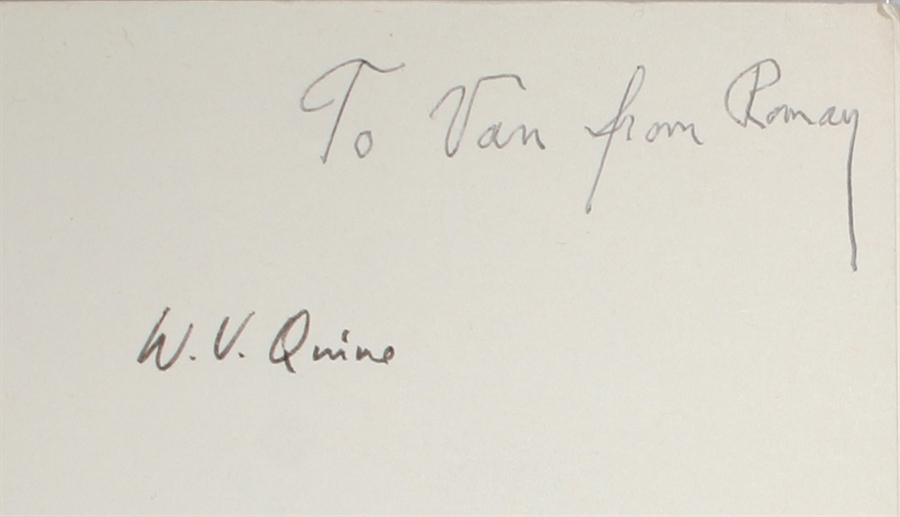 To Van from Romay
W. V. Quine